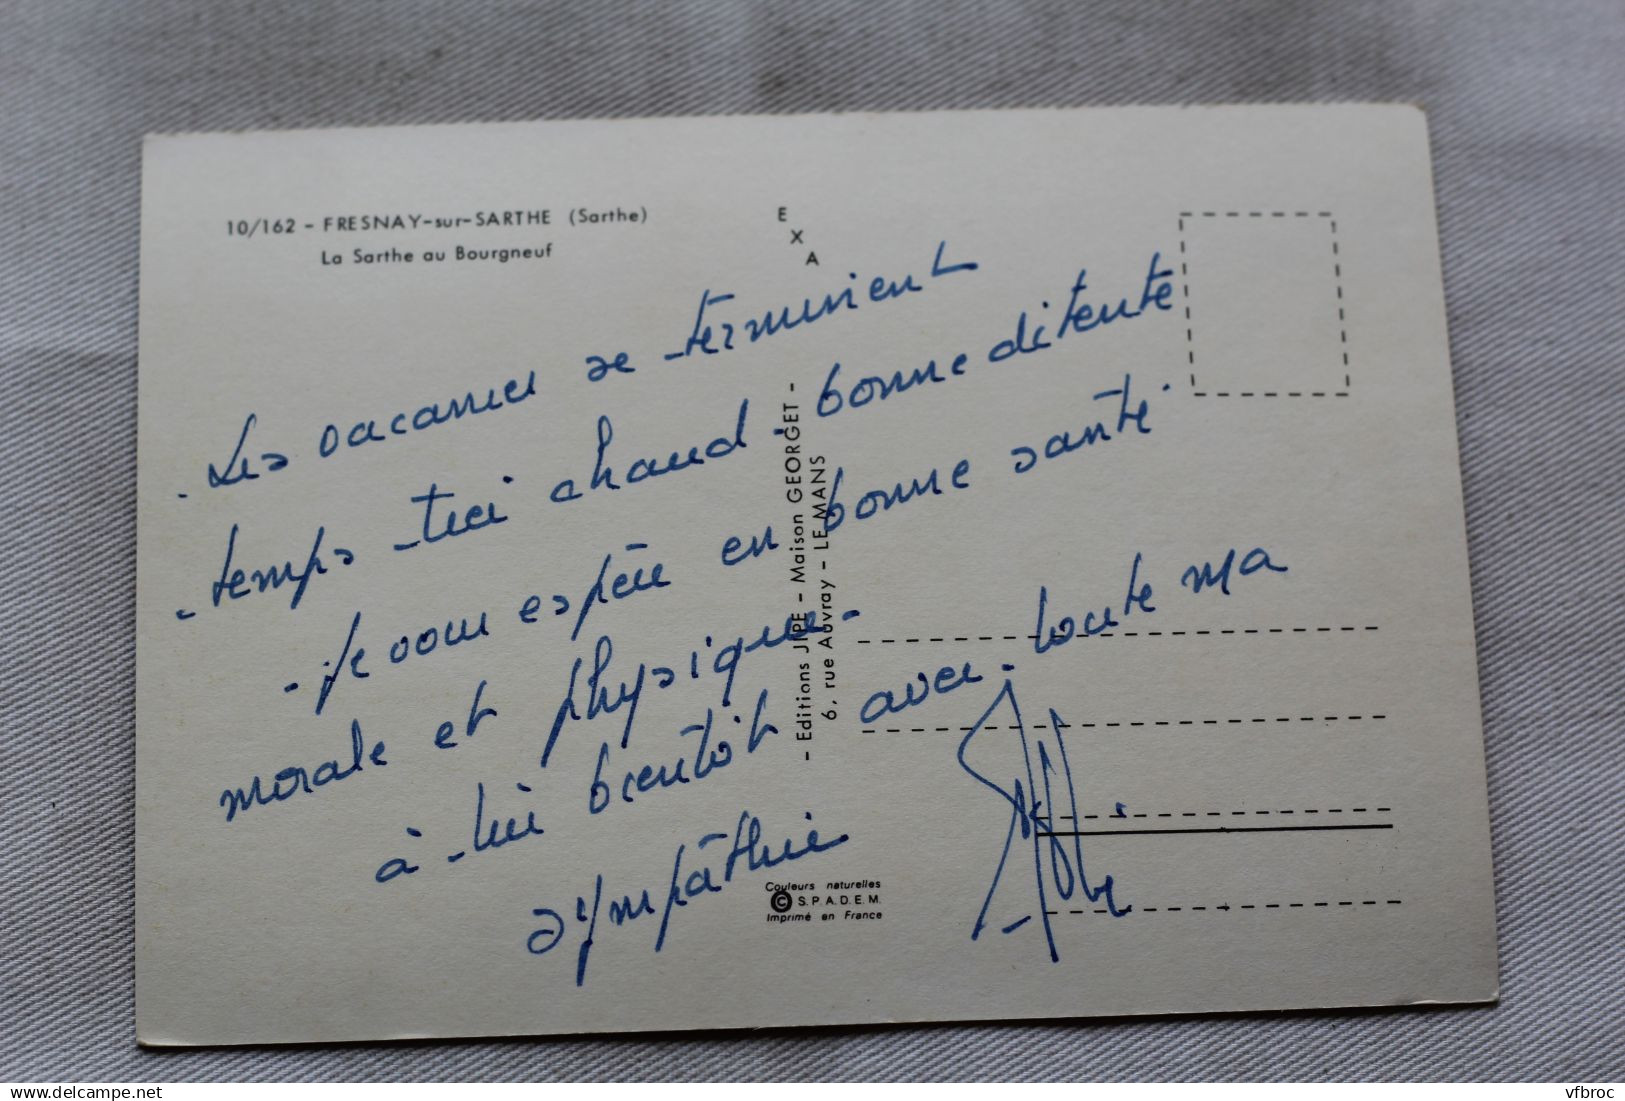 10/162 - FRESNAY-sur-SARTHE (Sarthe)
La Sarthe au Bourgneuf
E
X
A
. Les vacances se terminent
- temps très chaud - bonne détente
- je vous espère en bonne santé.
morale et physique -
à très bientôt avec toute ma
sympathie
- Editions JIPE - Maison GEORGET -
6, rue Auvray - LE MANS
Couleurs naturelles
© S.P.A.D.E.M.
Imprimé en France
Delcampe.net
vfbroc